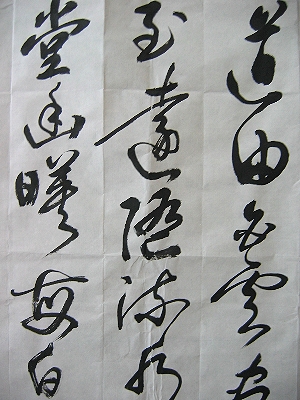 道由白雲盡
至遠隨流水
堂幽暎每白